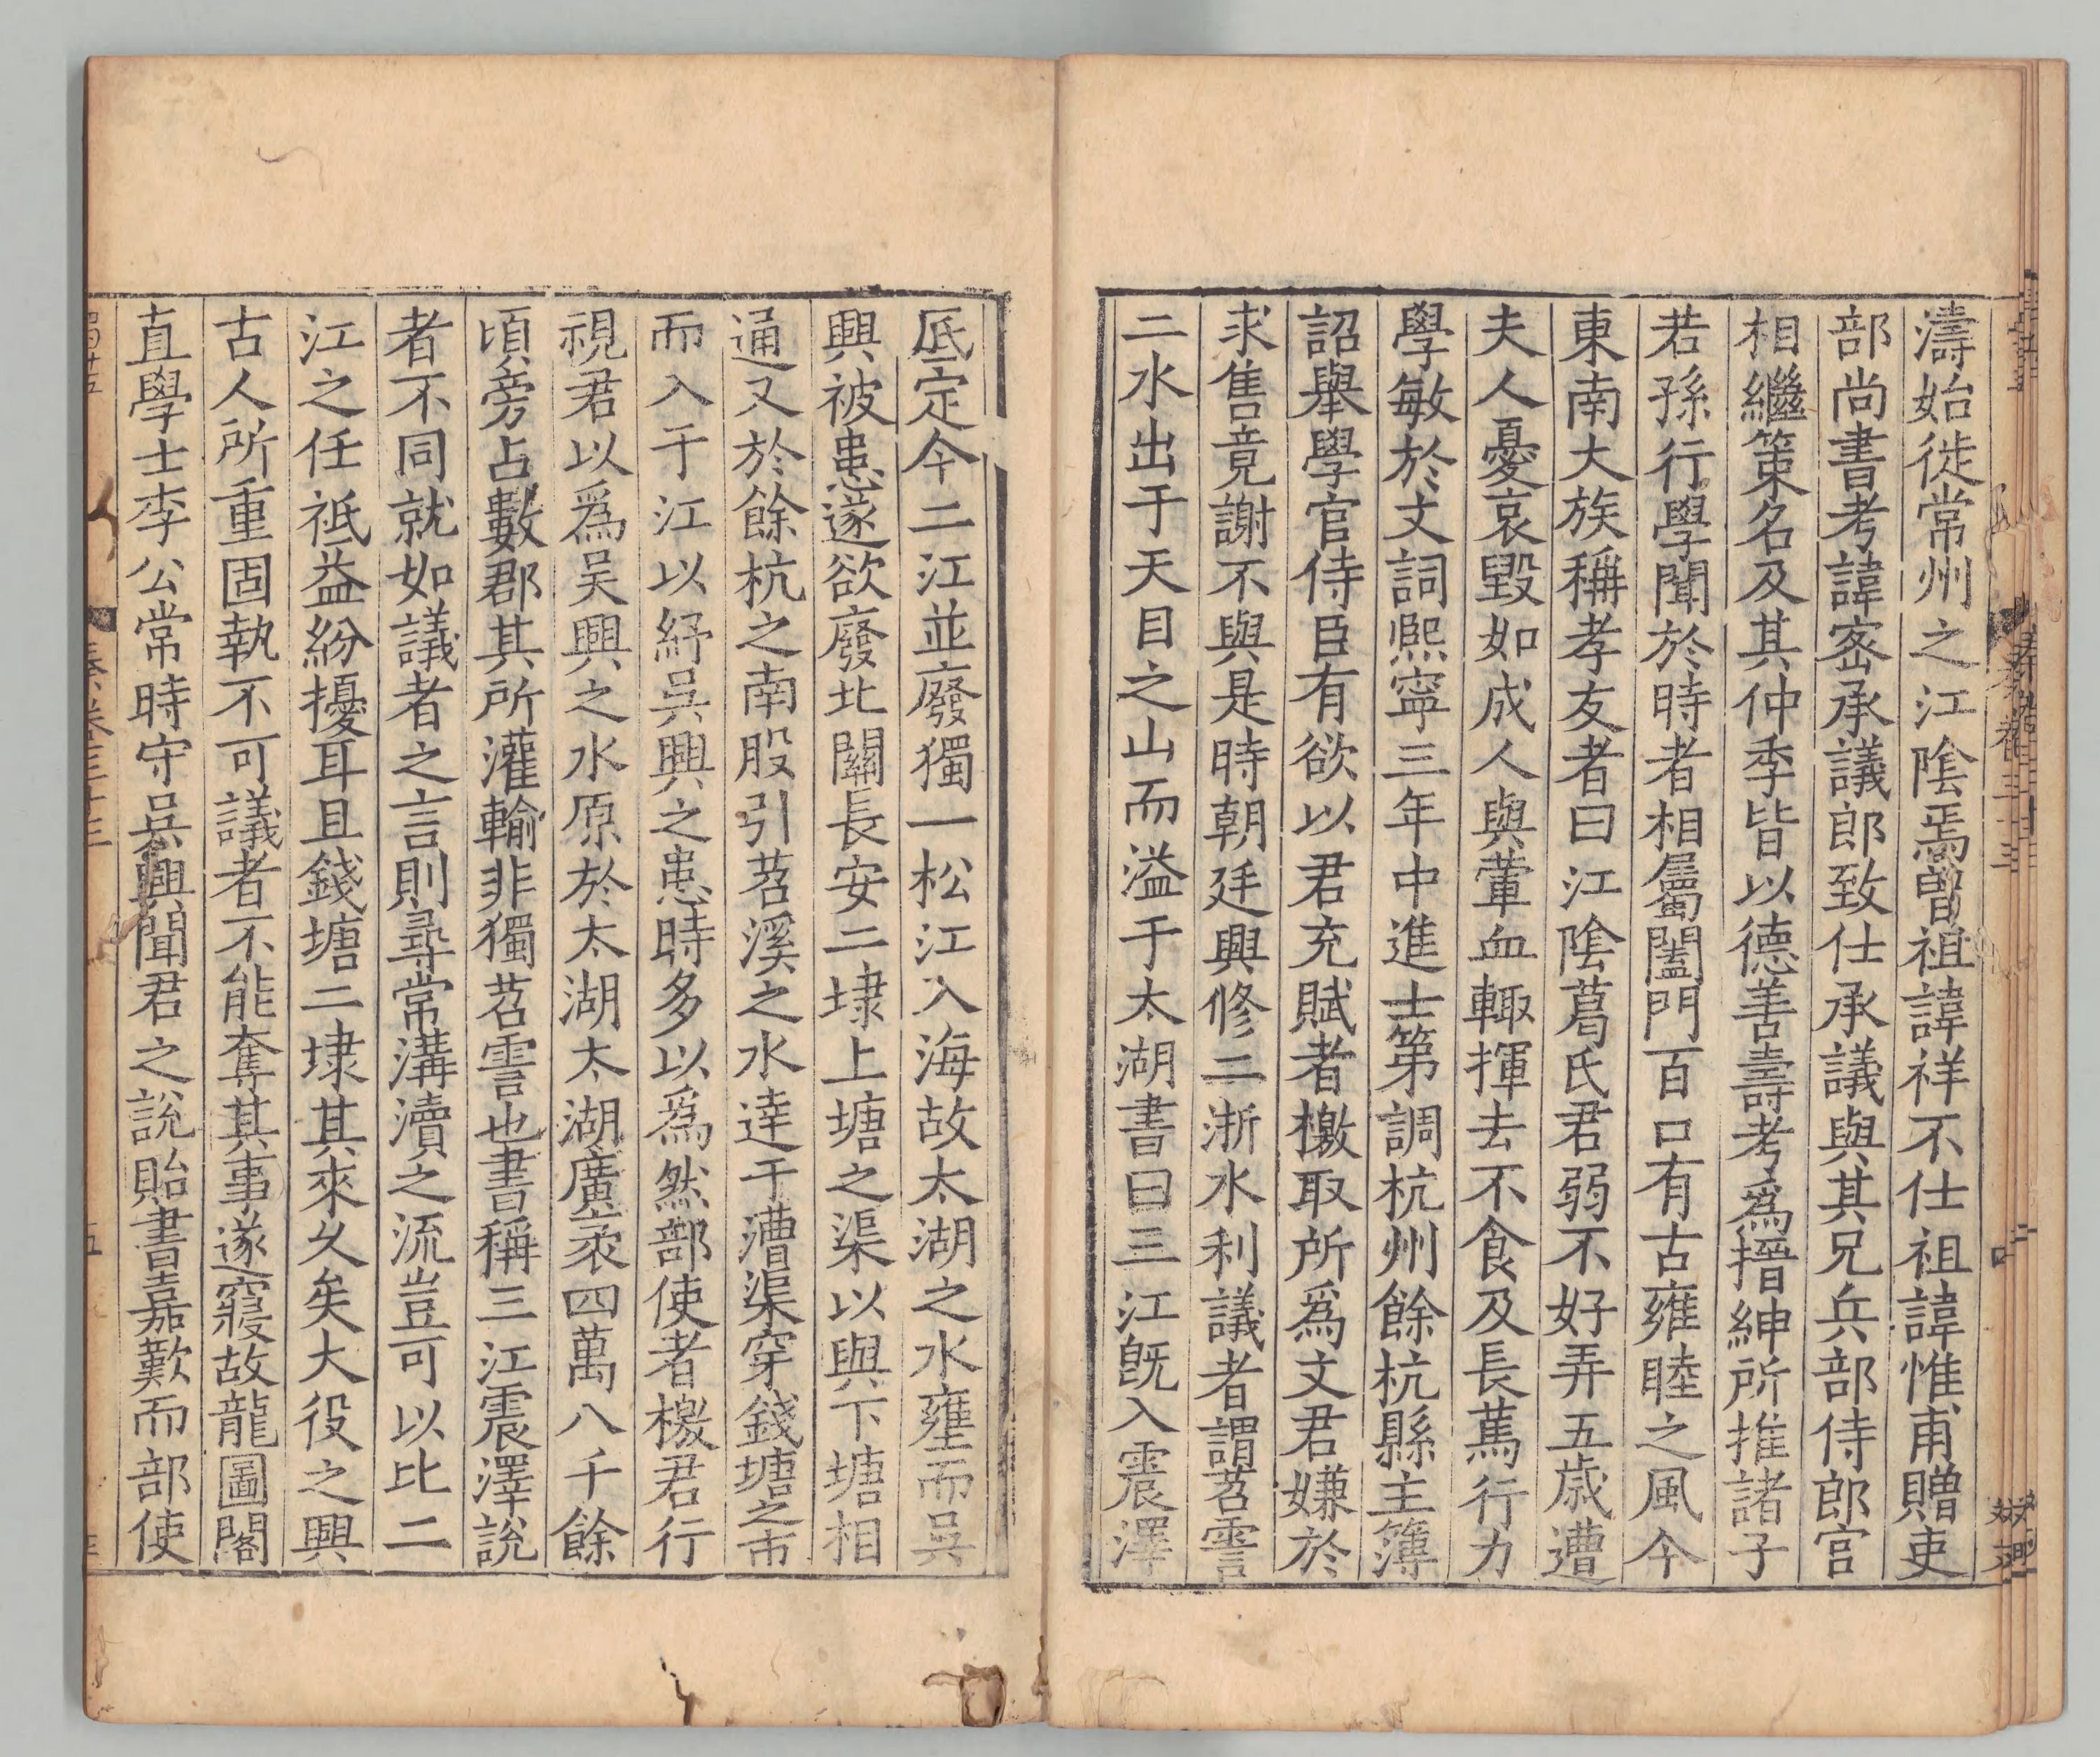 濤始徙常州之江陰焉曾祖諱祥不仕祖諱惟甫贈吏
部尚書考諱宻承議郎致仕承議與其兄兵部侍郎官
相繼策名及其仲季皆以德善壽考爲搢紳所推諸子
若孫行學聞於時者相屬闔門百口有古雍睦之風今
東南大族稱孝友者曰江陰葛氏君弱不好弄五歳遭
夫人憂哀毀如成人與葷血輙揮去不食及長蔿行力
學敏於文詞熈寧三年中進士第調杭州餘杭縣主簿
詔舉學官侍臣有欲以君充賦者檄取所爲文君嫌於
求售竟謝不與是時朝廷興修二浙水利議者謂苕霅
二水出于天目之山而溢于太湖書曰三江旣入震澤
厎定今二江並廢獨一松江入海故太湖之水壅而吳
興被患遂欲廢北關長安二埭上塘之渠以與下塘相
通又於餘杭之南股引苕溪之水達于漕渠穿錢塘之市
而入于江以紓吳興之患時多以爲然部使者檄君行
視君以爲吴興之水原於太湖太湖廣袤四萬八千餘
頃旁占數郡其所灌輸非獨苕霅也書稱三江震澤説
者不同就如議者之言則尋常溝瀆之流豈可以比二
江之任祗益紛擾耳且錢塘二埭其來久矣大役之興
古人所重固執不可議者不能奪其事遂寢故龍圖閣
直學士李公常時守吳興聞君之説貽書嘉歎而部使